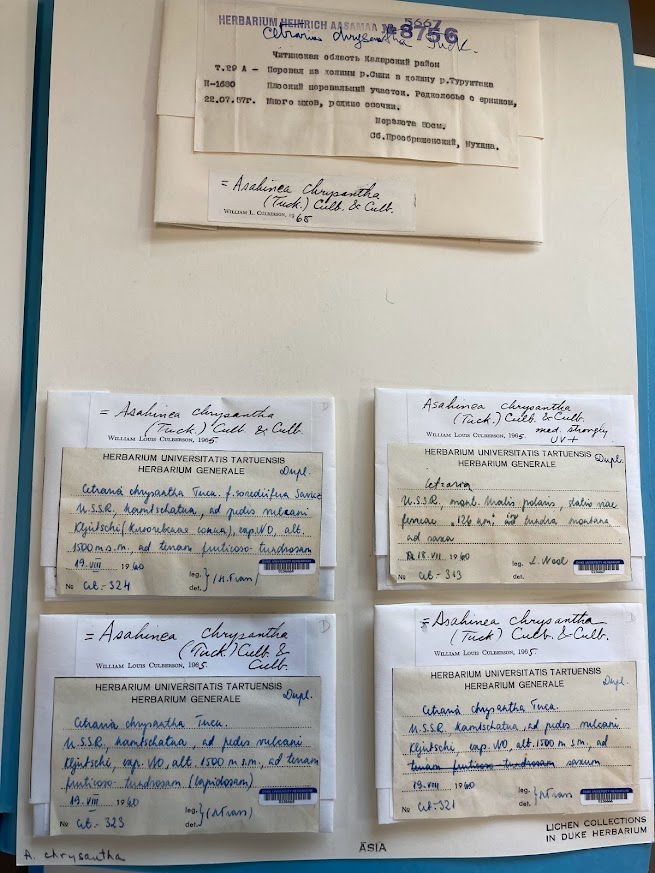 HERBARIUM HEINRICH AASAMAA № 8756
5667
Cetraria chrysantha Tuck.
Читинская область Каларский район
Т.29 А - Перевал из долины р.Сини в долину р.Туруктака
Н-1680 Плоский перевальный участок. Редколесье с ерником,
22.07.57г. Много мхов, редкие осочки.
Мерзлота
Сб.Преображенский, Мухина.
= Asahinea chrysantha
(Tuck.) Culb. & Culb.
WILLIAM L. CULBERSON, 1965
= Asahinea chrysantha
(Tuck.) Culb & Culb.
WILLIAM LOUIS CULBERSON, 1965
D
HERBARIUM UNIVERSITATIS TARTUENSIS
HERBARIUM GENERALE Dupl.
Cetraria chrysantha Tuck. f. sorediifera Savicz
U.S.S.R., Kamtschatka, ad pedes vulcani
Kljutschi (Ключевская сопка), exp. NO, alt.
1500 m s.m., ad terram fruticoso-tundrosam
19. VIII 1960
leg. det. } (H. Trass)
№ Cet.- 324
DUKE UNIVERSITY HERBARIUM
Asahinea chrysantha
(Tuck.) Culb. & Culb.
WILLIAM LOUIS CULBERSON, 1965.
med. strongly
UV+
HERBARIUM UNIVERSITATIS TARTUENSIS
HERBARIUM GENERALE Dupl.
Cetraria
U.S.S.R., mont. Uralis polaris, statio viae
ferreae "126 km" in tundra montana
ad saxa
18. VII 1960
leg.
det.
№ Cet.- 313
DUKE UNIVERSITY HERBARIUM
= Asahinea chrysantha
(Tuck.) Culb. &
Culb.
WILLIAM LOUIS CULBERSON, 1965.
D
HERBARIUM UNIVERSITATIS TARTUENSIS
HERBARIUM GENERALE Dupl.
Cetraria chrysantha Tuck.
U.S.S.R., Kamtschatka, ad pedes vulcani
Kljutschi, exp. NO, alt. 1500 m s.m., ad terram
fruticoso-tundrosam (lapidosam)
19. VIII 1960
leg. det. } (H. Trass)
№ Cet.- 323
DUKE UNIVERSITY HERBARIUM
= Asahinea chrysantha
(Tuck.) Culb. & Culb.
WILLIAM LOUIS CULBERSON, 1965
HERBARIUM UNIVERSITATIS TARTUENSIS
HERBARIUM GENERALE Dupl.
Cetraria chrysantha Tuck.
U.S.S.R. Kamtschatka, ad pedes vulcani
Kljutschi, exp. NO, alt. 1500 m s.m., ad
terram fruticoso-tundrosam saxum
19. VIII 1960
leg. det. } H. Trass
№ Cet.- 321
DUKE UNIVERSITY HERBARIUM
LICHEN COLLECTIONS
IN DUKE HERBARIUM
A. chrysantha
ASIA